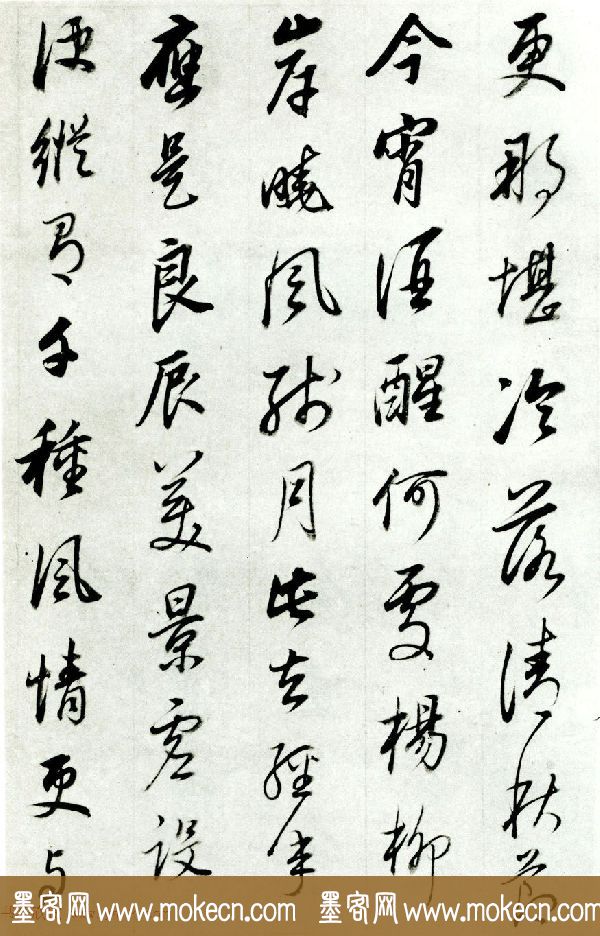 更那堪冷落清秋節
今宵酒醒何處楊柳
岸曉風殘月此去經年
應是良辰美景虛設
便縱有千種風情更与
墨客网 www.mokecn.com 墨客网 www.mokecn.com